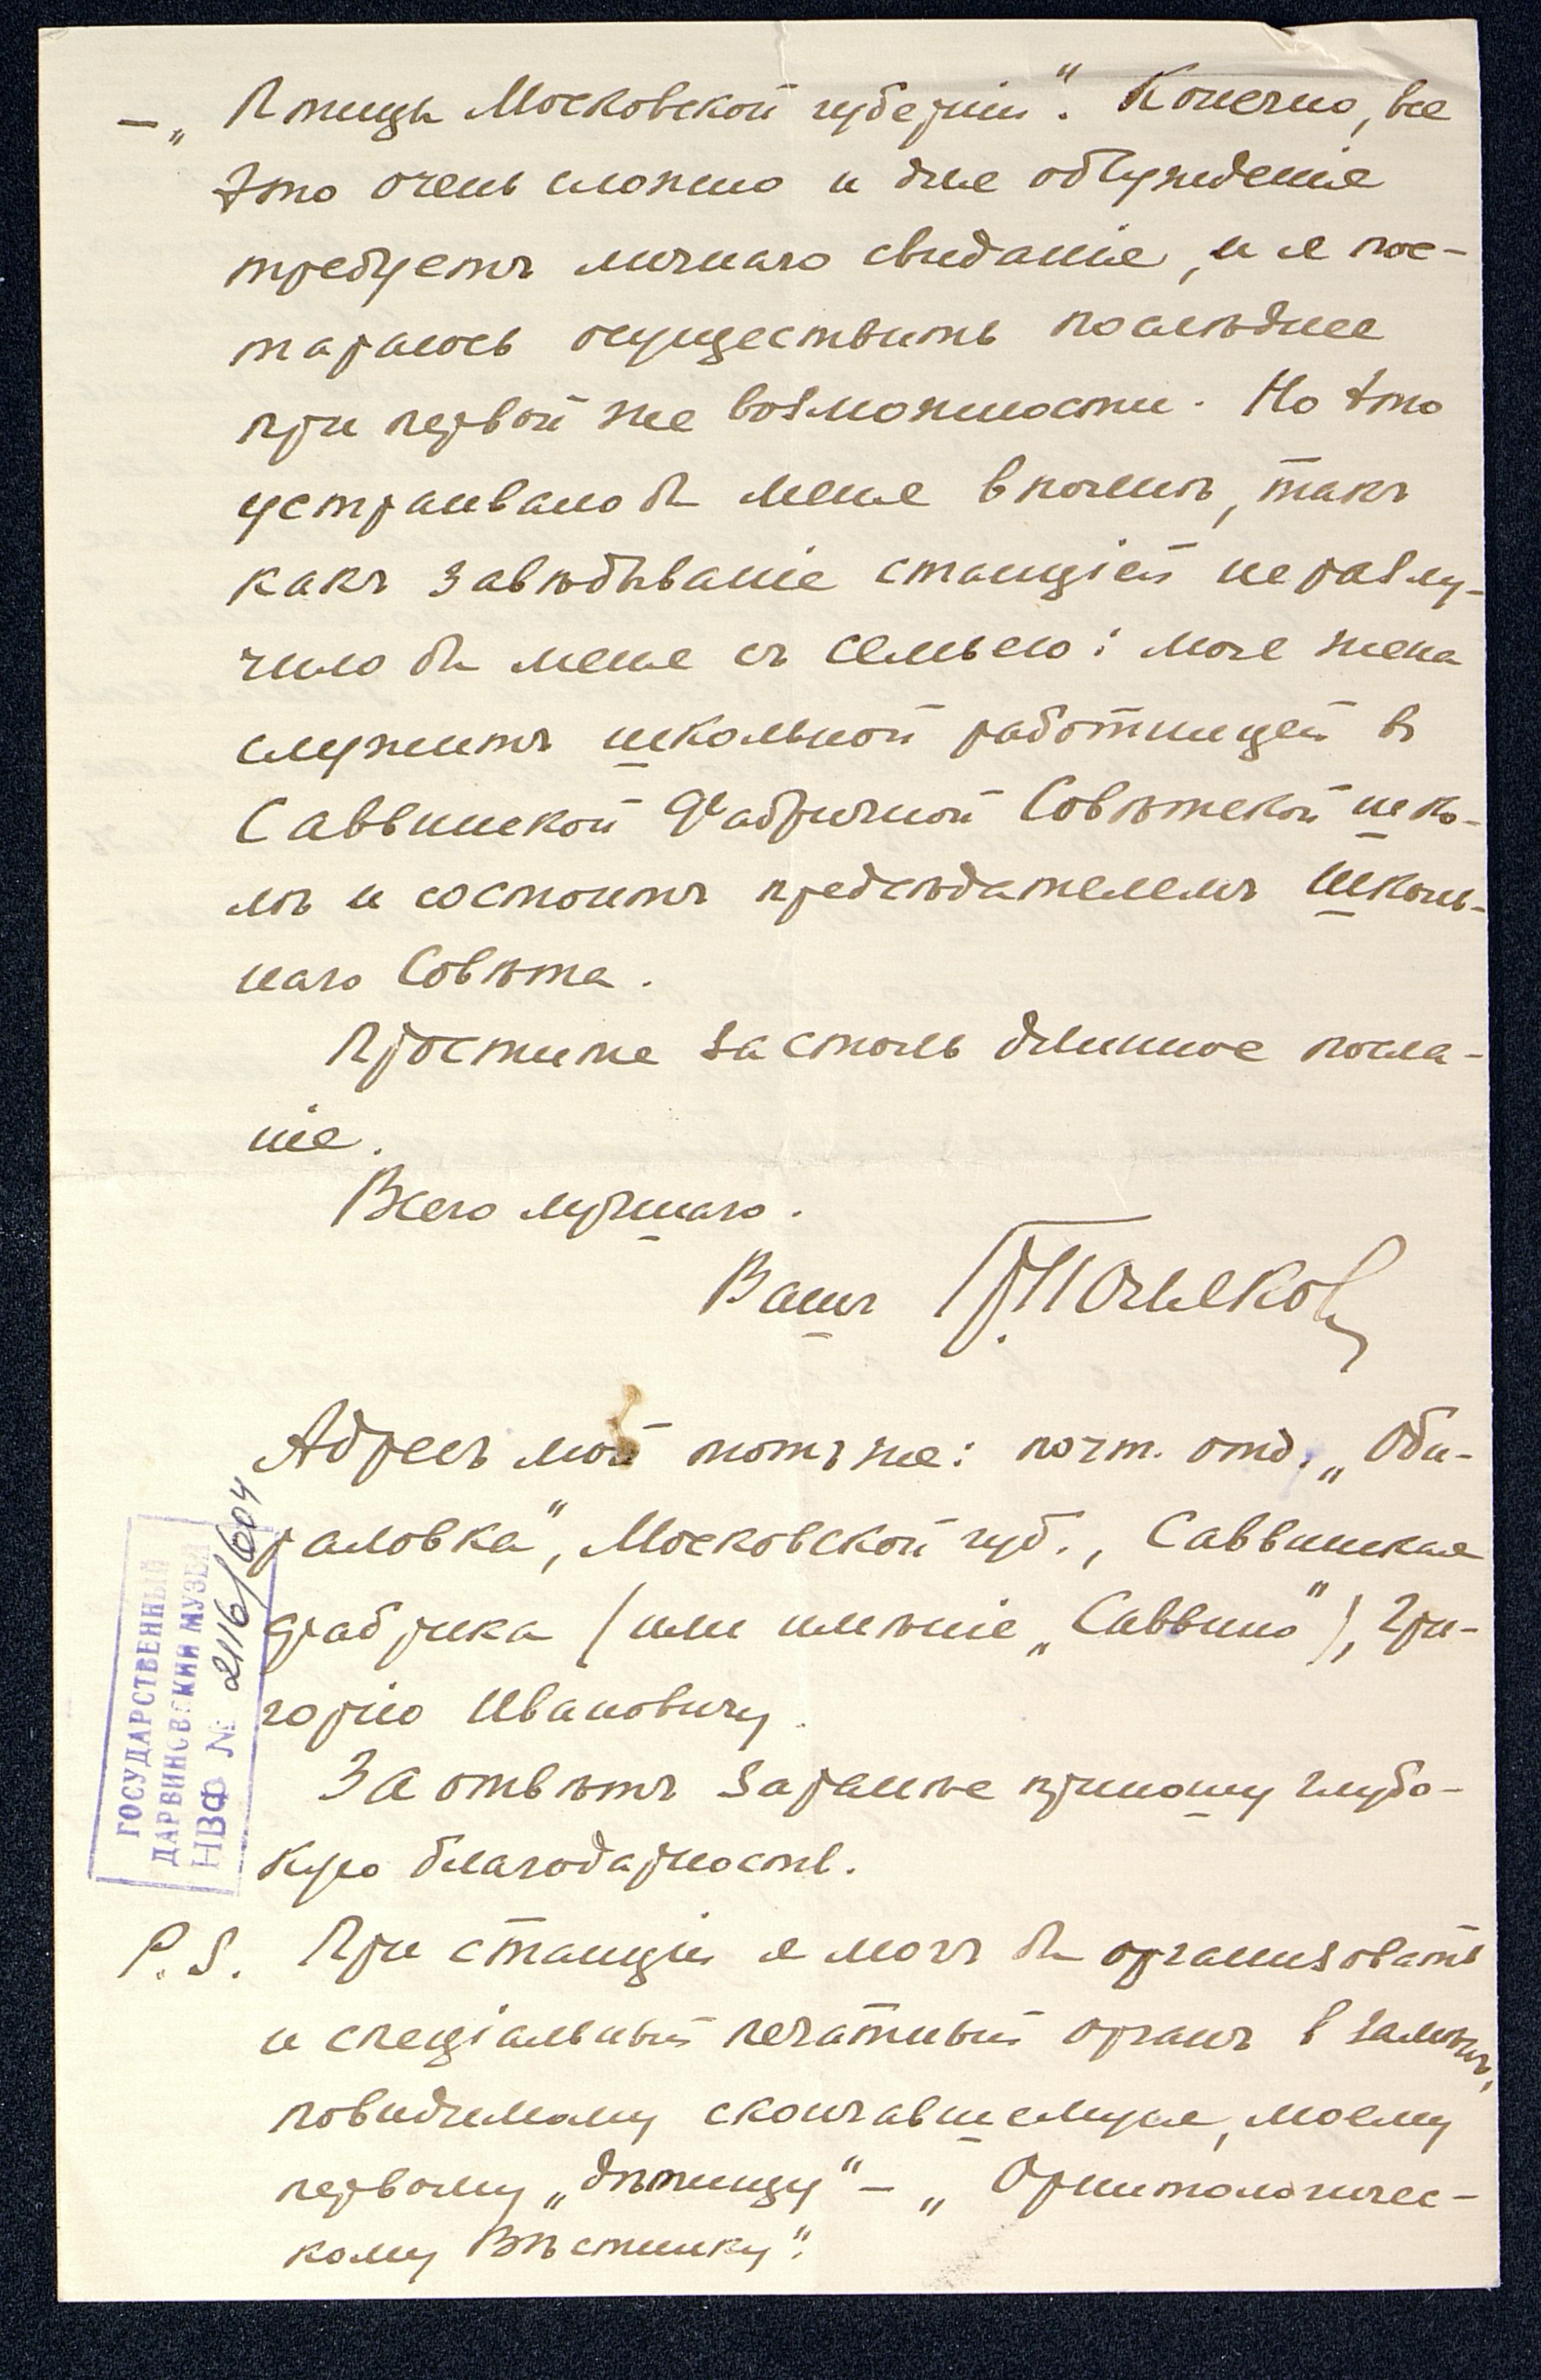 — „Птицы Московской губерніи“. Конечно, все
это очень сложно и для обсужденія
требуетъ личнаго свиданія, и я пос-
тараюсь осуществить послѣднее
при первой же возможности. Но это
устраивало бы меня вполнѣ, такъ
какъ завѣдываніе станціей не разлу-
чило бы меня съ семьею: моя жена
служитъ школьной работницей въ
Саввинской Фабричной Совѣтской шко-
лѣ и состоитъ предсѣдателемъ Школь-
наго Совѣта.
Простите за столь длинное посла-
ніе.
Всего лучшаго.
Вашъ Г. Поляковъ
Адресъ мой тотъ же: почт. отд. „Оби-
раловка“, Московской губ., Саввинская
фабрика (или имѣніе „Саввино“), Гри-
горію Ивановичу.
За отвѣтъ заранѣе приношу глубо-
кую благодарность.
P.S. При станціи я могъ бы организовать
и спеціальный печатный органъ въ замѣнъ,
повидимому скончавшемуся, моему
первому „дѣтищу“ — „Орнитологичес-
кому Вѣстнику“.
ГОСУДАРСТВЕННЫЙ
ДАРВИНОВСКИЙ МУЗЕЙ
НВФ № 2116/604